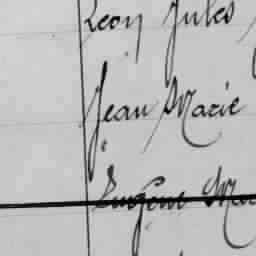 Léon Jules
Jean Marie
Eugène Ma